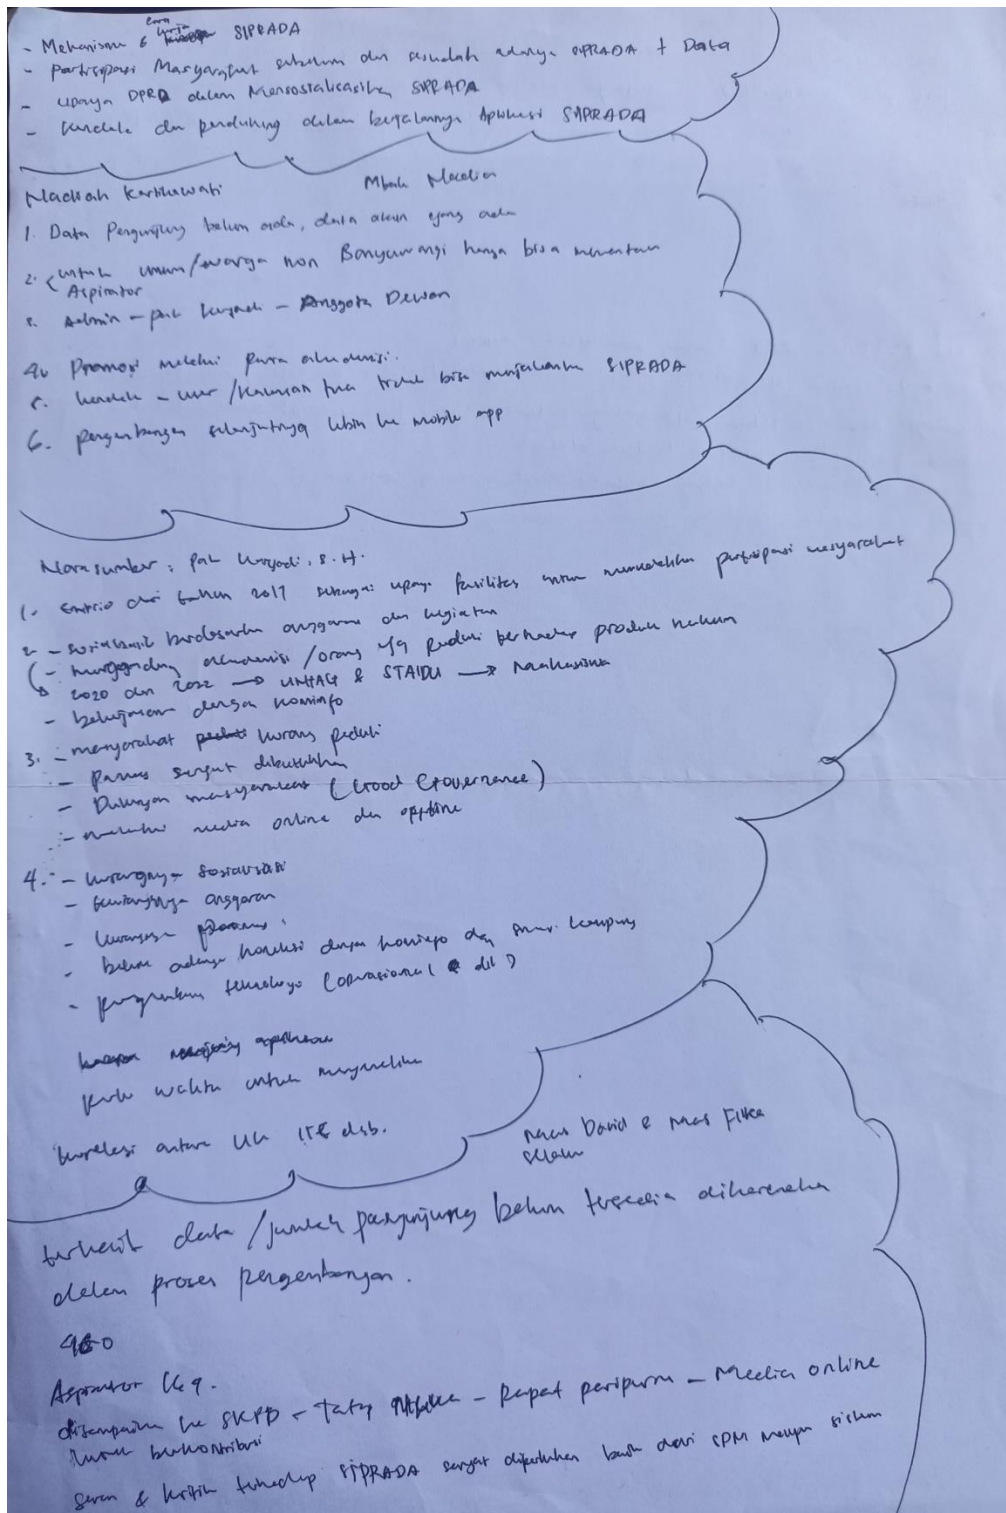 - Mekanisme & cara kerja SIPRADA
- partisipasi Masyarakat sebelum dan sesudah adanya SIPRADA + Data
- upaya DPRD dalam Mensosialisasikan SIPRADA
- kendala dan pendukung dalam berjalannya Aplikasi SIPRADA
Nadiah Kartikawati Mbak
1. Data Pengunjung belum ada, data akun yang ada
2. untuk umum/warga non Banyuwangi hanya bisa
Aspirator
3. Admin - pak - Anggota Dewan
4. Promosi melalui para akademisi.
5. kendala - user / tua tidak bisa menjalankan SIPRADA
6. pengembangan selanjutnya lebih ke mobile app
Narasumber : pak , S.H.
1. dari tahun 2017 sebagai upaya fasilitas untuk partisipasi masyarakat
2. - berdasarkan anggaran dan kegiatan
- akademisi / orang yg peduli terhadap produk hukum
2020 dan 2022 → UNTAG & STAIDU → Mahasiswa
- bekerjasama dengan kominfo
3. - masyarakat kurang peduli
- sangat dibutuhkan
- Dukungan masyarakat (Good Governance)
- melalui media online dan offline
4. - kurangnya sosialisasi
- kurangnya anggaran
- kurangnya
- belum adanya koneksi dengan kominfo dan smart kampung
- teknologi (operasional dll)
perlu waktu untuk
korelasi antara UU ITE dsb.
mas David & mas
terkait data / jumlah pengunjung belum tersedia dikarenakan
dalam proses pengembangan.
Aspirator
disampaikan ke SKPD - Tatap Muka - Rapat paripurna - Media online
berkontribusi
saran & kritik terhadap SIPRADA sangat diperlukan baik dari SDM maupun sistem